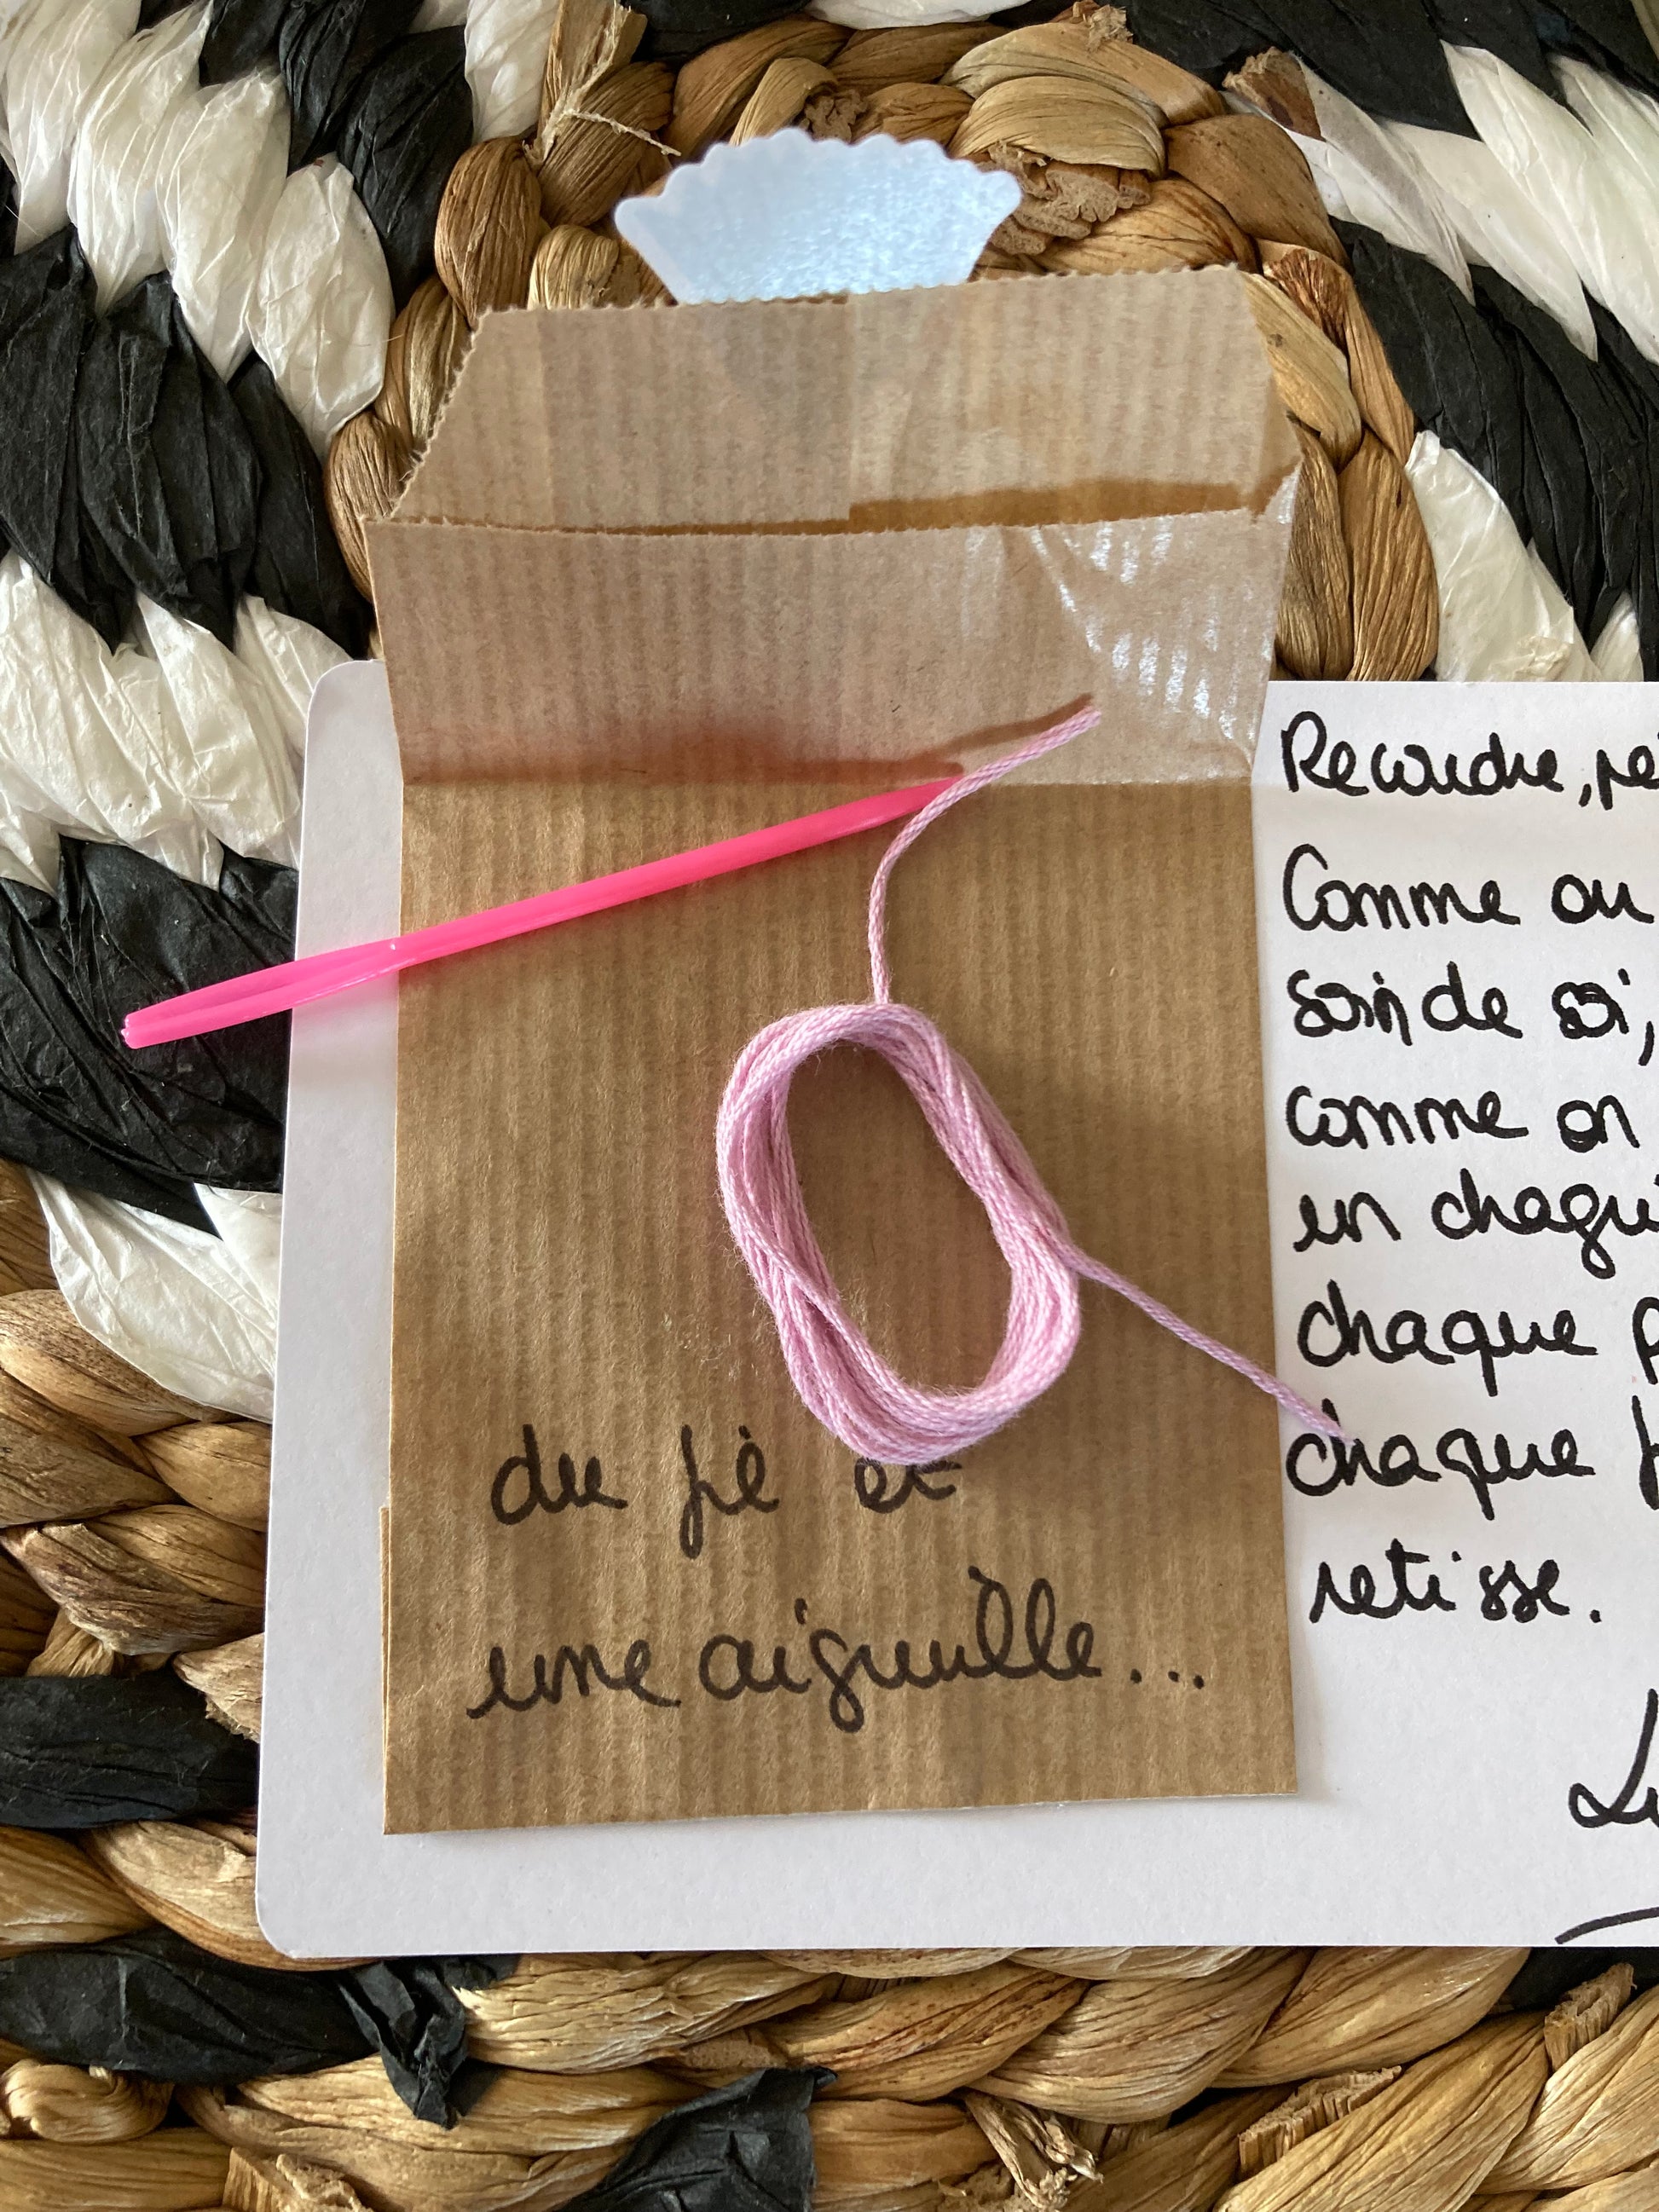 du fil et
une aiguille...
Recoudre,
Comme on
soin de soi,
comme on
un chagri
chaque
chaque
retisse.